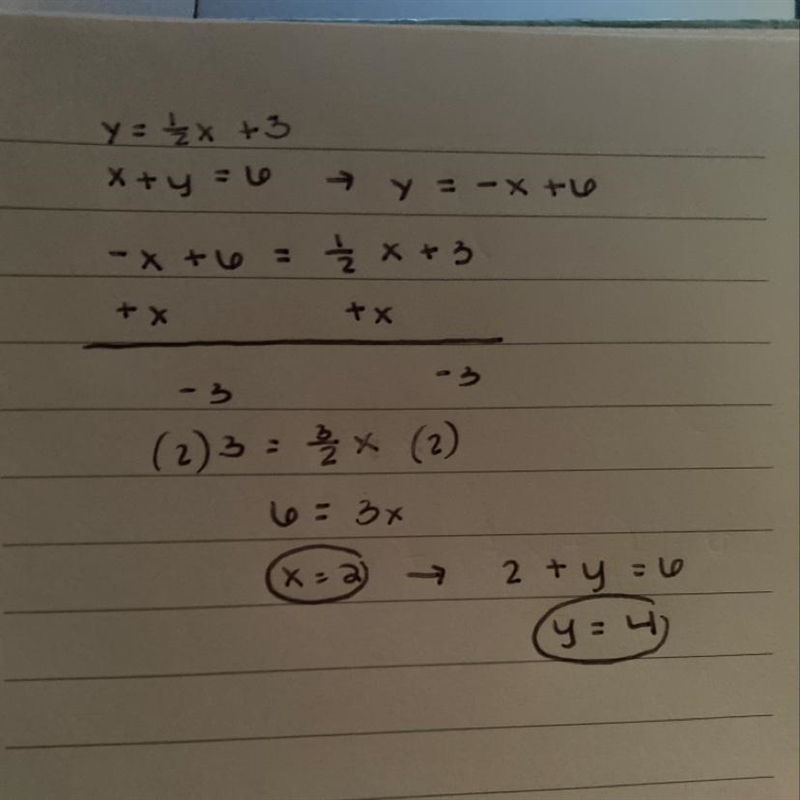 y = 1/2 x + 3
x + y = 6 → y = -x + 6
-x + 6 = 1/2 x + 3
+ x + x
- 3 - 3
(2) 3 = 3/2 x (2)
6 = 3x
x = 2 → 2 + y = 6
y = 4